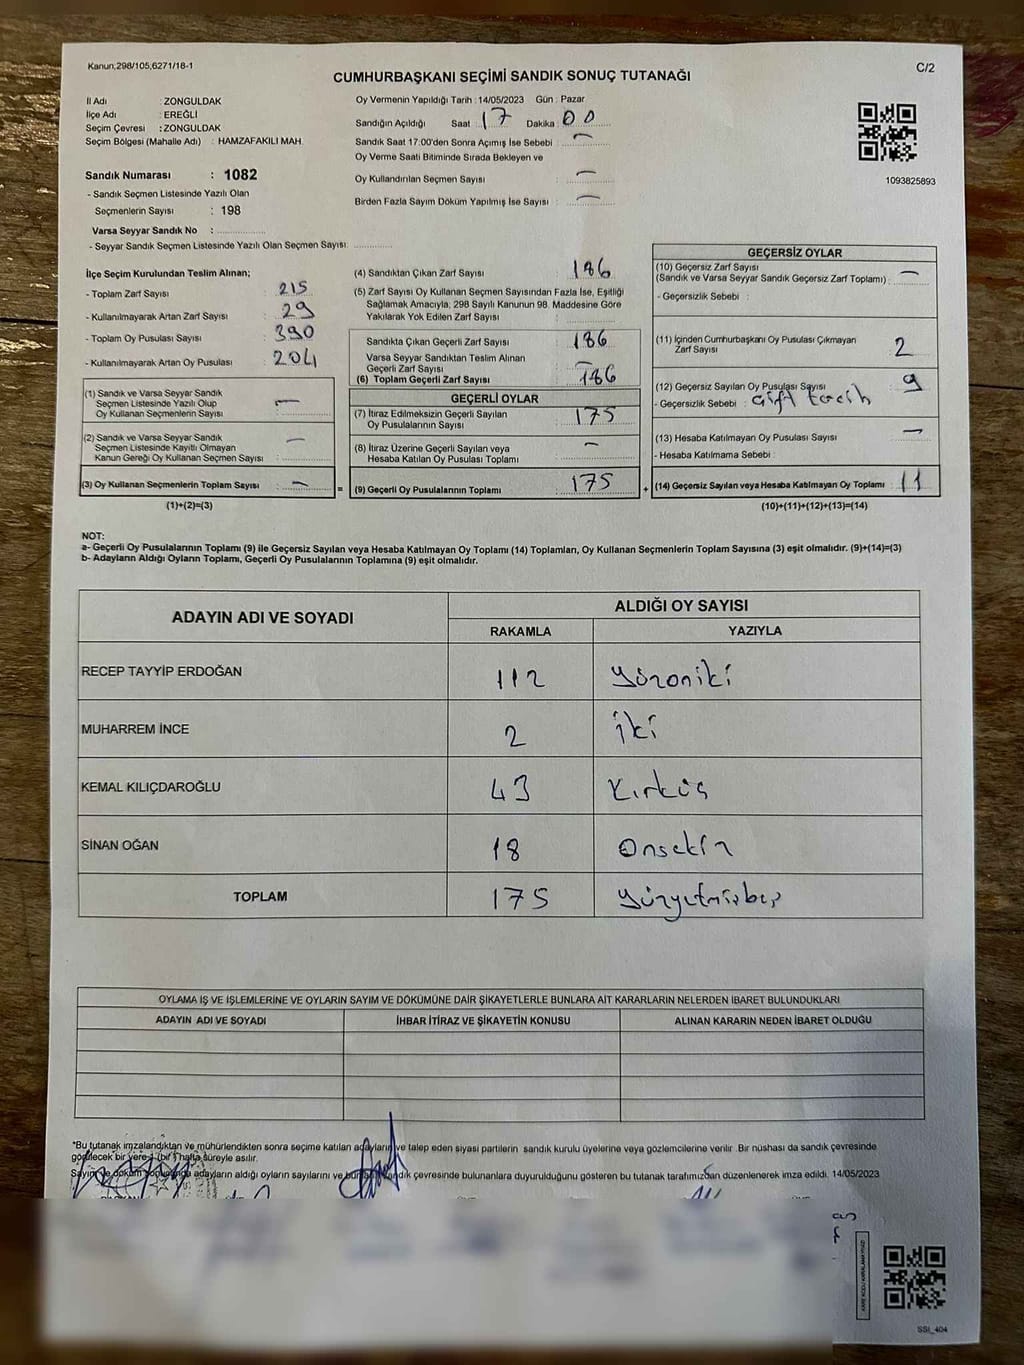 Kanun;298/105,6271/18-1
C/2
CUMHURBAŞKANI SEÇİMİ SANDIK SONUÇ TUTANAĞI
İl Adı : ZONGULDAK
İlçe Adı : EREĞLİ
Seçim Çevresi : ZONGULDAK
Seçim Bölgesi (Mahalle Adı) : HAMZAFAKILI MAH.
Sandık Numarası : 1082
- Sandık Seçmen Listesinde Yazılı Olan
Seçmenlerin Sayısı : 198
Varsa Seyyar Sandık No :
- Seyyar Sandık Seçmen Listesinde Yazılı Olan Seçmen Sayısı:
Oy Vermenin Yapıldığı Tarih : 14/05/2023 Gün : Pazar
Sandığın Açıldığı Saat 17 Dakika 00
Sandık Saat 17:00'den Sonra Açımış İse Sebebi : —
Oy Verme Saati Bitiminde Sırada Bekleyen ve
Oy Kullandırılan Seçmen Sayısı : —
Birden Fazla Sayım Döküm Yapılmış İse Sayısı : —
1093825893
İlçe Seçim Kurulundan Teslim Alınan;
- Toplam Zarf Sayısı : 215
- Kullanılmayarak Artan Zarf Sayısı : 29
- Toplam Oy Pusulası Sayısı : 390
- Kullanılmayarak Artan Oy Pusulası : 204
(1) Sandık ve Varsa Seyyar Sandık
Seçmen Listesinde Yazılı Olup
Oy Kullanan Seçmenlerin Sayısı : —
(2) Sandık ve Varsa Seyyar Sandık
Seçmen Listesinde Kayıtlı Olmayan
Kanun Gereği Oy Kullanan Seçmen Sayısı : —
(3) Oy Kullanan Seçmenlerin Toplam Sayısı : —
(1)+(2)=(3)
(4) Sandıktan Çıkan Zarf Sayısı : 186
(5) Zarf Sayısı Oy Kullanan Seçmen Sayısından Fazla İse, Eşitliği
Sağlamak Amacıyla, 298 Sayılı Kanunun 98. Maddesine Göre
Yakılarak Yok Edilen Zarf Sayısı :
Sandıkta Çıkan Geçerli Zarf Sayısı : 186
Varsa Seyyar Sandıktan Teslim Alınan
Geçerli Zarf Sayısı : —
(6) Toplam Geçerli Zarf Sayısı : 186
GEÇERLİ OYLAR
(7) İtiraz Edilmeksizin Geçerli Sayılan
Oy Pusulalarının Sayısı : 175
(8) İtiraz Üzerine Geçerli Sayılan veya
Hesaba Katılan Oy Pusulası Toplamı : —
= (9) Geçerli Oy Pusulalarının Toplamı : 175
GEÇERSİZ OYLAR
(10) Geçersiz Zarf Sayısı
(Sandık ve Varsa Seyyar Sandık Geçersiz Zarf Toplamı) : —
- Geçersizlik Sebebi :
(11) İçinden Cumhurbaşkanı Oy Pusulası Çıkmayan
Zarf Sayısı : 2
(12) Geçersiz Sayılan Oy Pusulası Sayısı : 9
- Geçersizlik Sebebi : Çift tercih
(13) Hesaba Katılmayan Oy Pusulası Sayısı : —
- Hesaba Katılmama Sebebi :
+ (14) Geçersiz Sayılan veya Hesaba Katılmayan Oy Toplamı : 11
(10)+(11)+(12)+(13)=(14)
NOT:
a- Geçerli Oy Pusulalarının Toplamı (9) ile Geçersiz Sayılan veya Hesaba Katılmayan Oy Toplamı (14) Toplamları, Oy Kullanan Seçmenlerin Toplam Sayısına (3) eşit olmalıdır. (9)+(14)=(3)
b- Adayların Aldığı Oyların Toplamı, Geçerli Oy Pusulalarının Toplamına (9) eşit olmalıdır.
ADAYIN ADI VE SOYADI
ALDIĞI OY SAYISI
RAKAMLA YAZIYLA
RECEP TAYYİP ERDOĞAN 112 Yüzoniki
MUHARREM İNCE 2 İki
KEMAL KILIÇDAROĞLU 43 Kırküç
SİNAN OĞAN 18 Onsekiz
TOPLAM 175 Yüzyetmişbeş
OYLAMA İŞ VE İŞLEMLERİNE VE OYLARIN SAYIM VE DÖKÜMÜNE DAİR ŞİKAYETLERLE BUNLARA AİT KARARLARIN NELERDEN İBARET BULUNDUKLARI
ADAYIN ADI VE SOYADI İHBAR İTİRAZ VE ŞİKAYETİN KONUSU ALINAN KARARIN NEDEN İBARET OLDUĞU
*Bu tutanak imzalandıktan ve mühürlendikten sonra seçime katılan adayların ve talep eden siyasi partilerin sandık kurulu üyelerine veya gözlemcilerine verilir. Bir nüshası da sandık çevresinde
görülecek bir yere 1 (bir) hafta süreyle asılır.
Sayım ve döküm sonucunda adayların aldığı oyların sayılarını ve bunun sandık çevresinde bulunanlara duyurulduğunu gösteren bu tutanak tarafımızdan düzenlenerek imza edildi. 14/05/2023
SSI_404